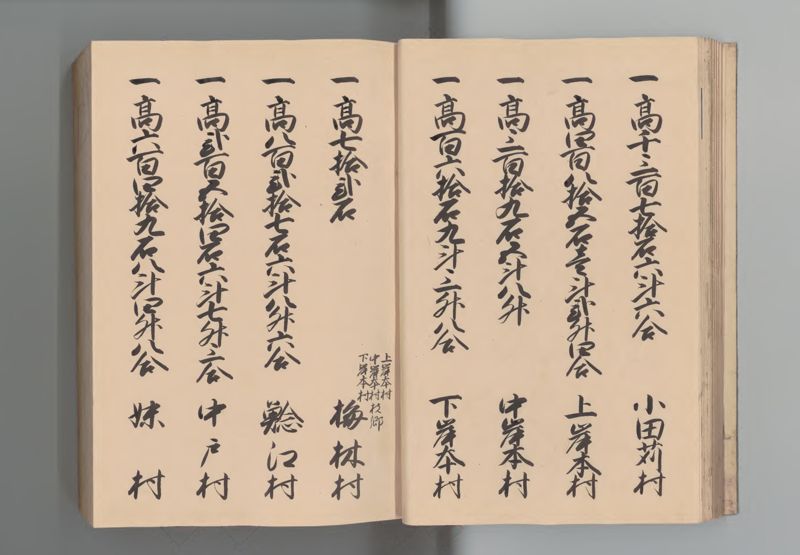 一高千三百七拾石六斗六合 小田苅村
一高四百八拾五石壱斗弐升四合 上岸本村
一高三百拾九石五斗八升 中岸本村
一高百六拾石九斗三升八合 下岸本村
上岸本村
中岸本村枝郷
下岸本村
一高七拾弐石 梅林村
一高八百弐拾七石六斗八升六合 鯰江村
一高弐百五拾四石六斗七升二合 中戸村
一高六百四拾九石八斗四升八合 妹村